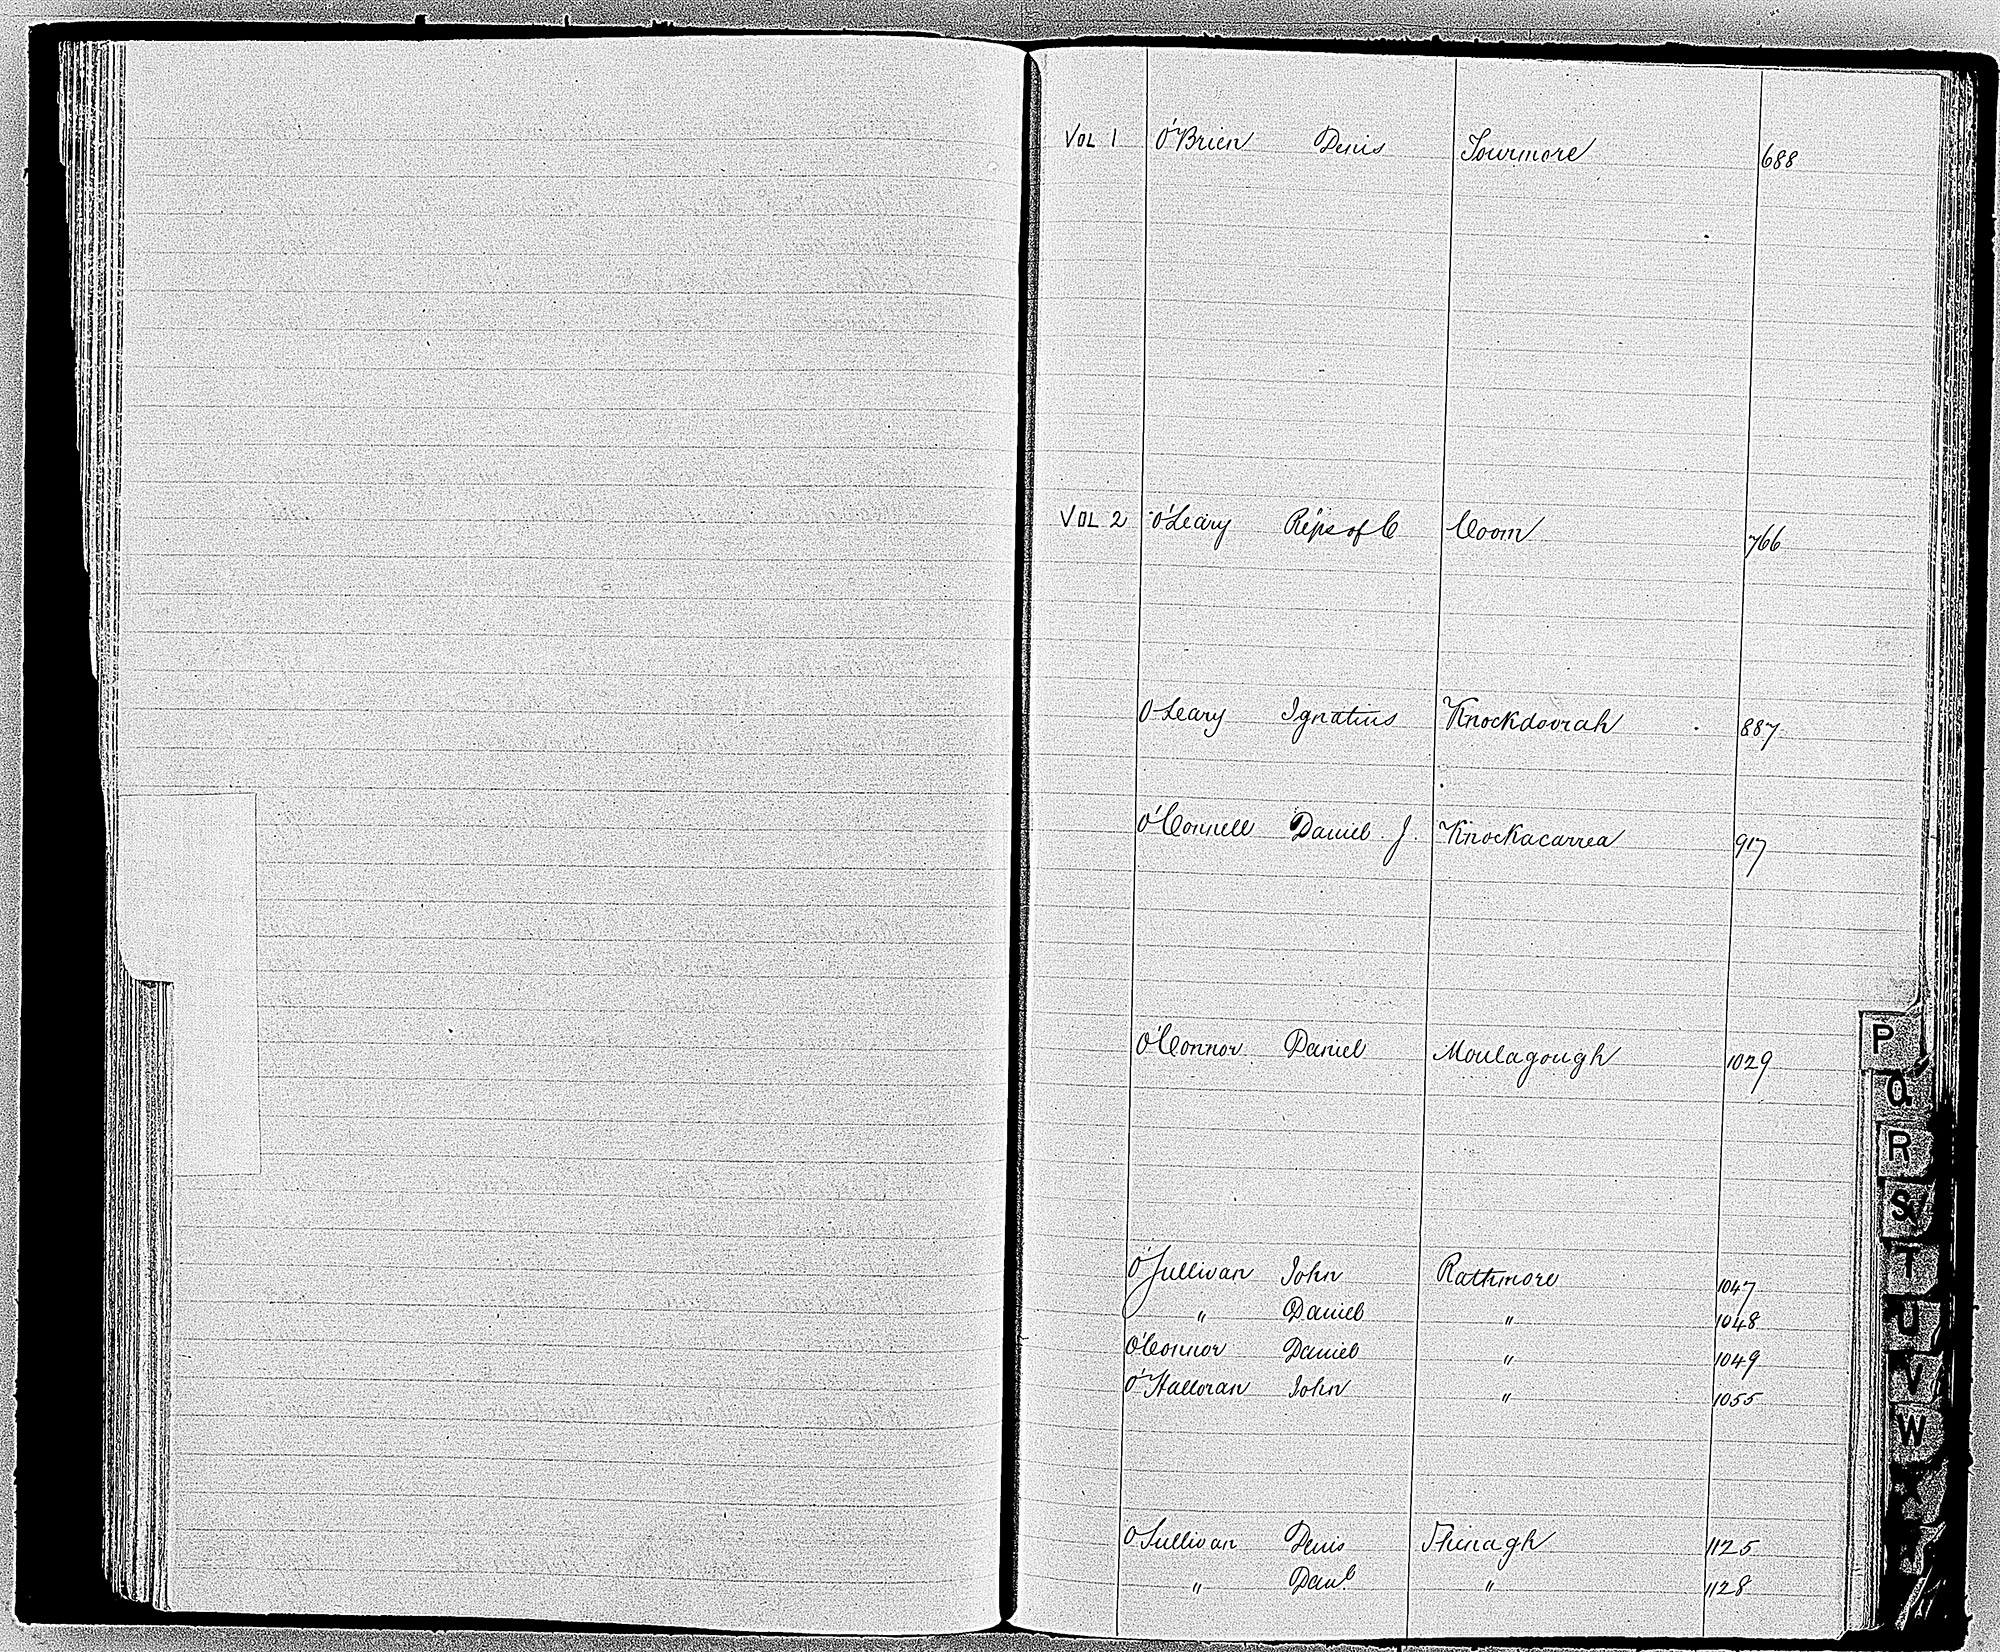 VOL 1 O'Brien Denis Tourmore 688
VOL 2 O'Leary Reps of C Coom 766
O'Leary Ignatius Knockdoorah 887
O'Connell Daniel J. Knockacarrea 917
O'Connor Daniel Moulagough 1029
O'Sullivan John Rathmore 1047
" Daniel " 1048
O'Connor Daniel " 1049
O'Halloran John " 1055
O'Sullivan Denis Shinagh 1125
" Danl " 1128
P
Q
R
S
T
U
V
W
X